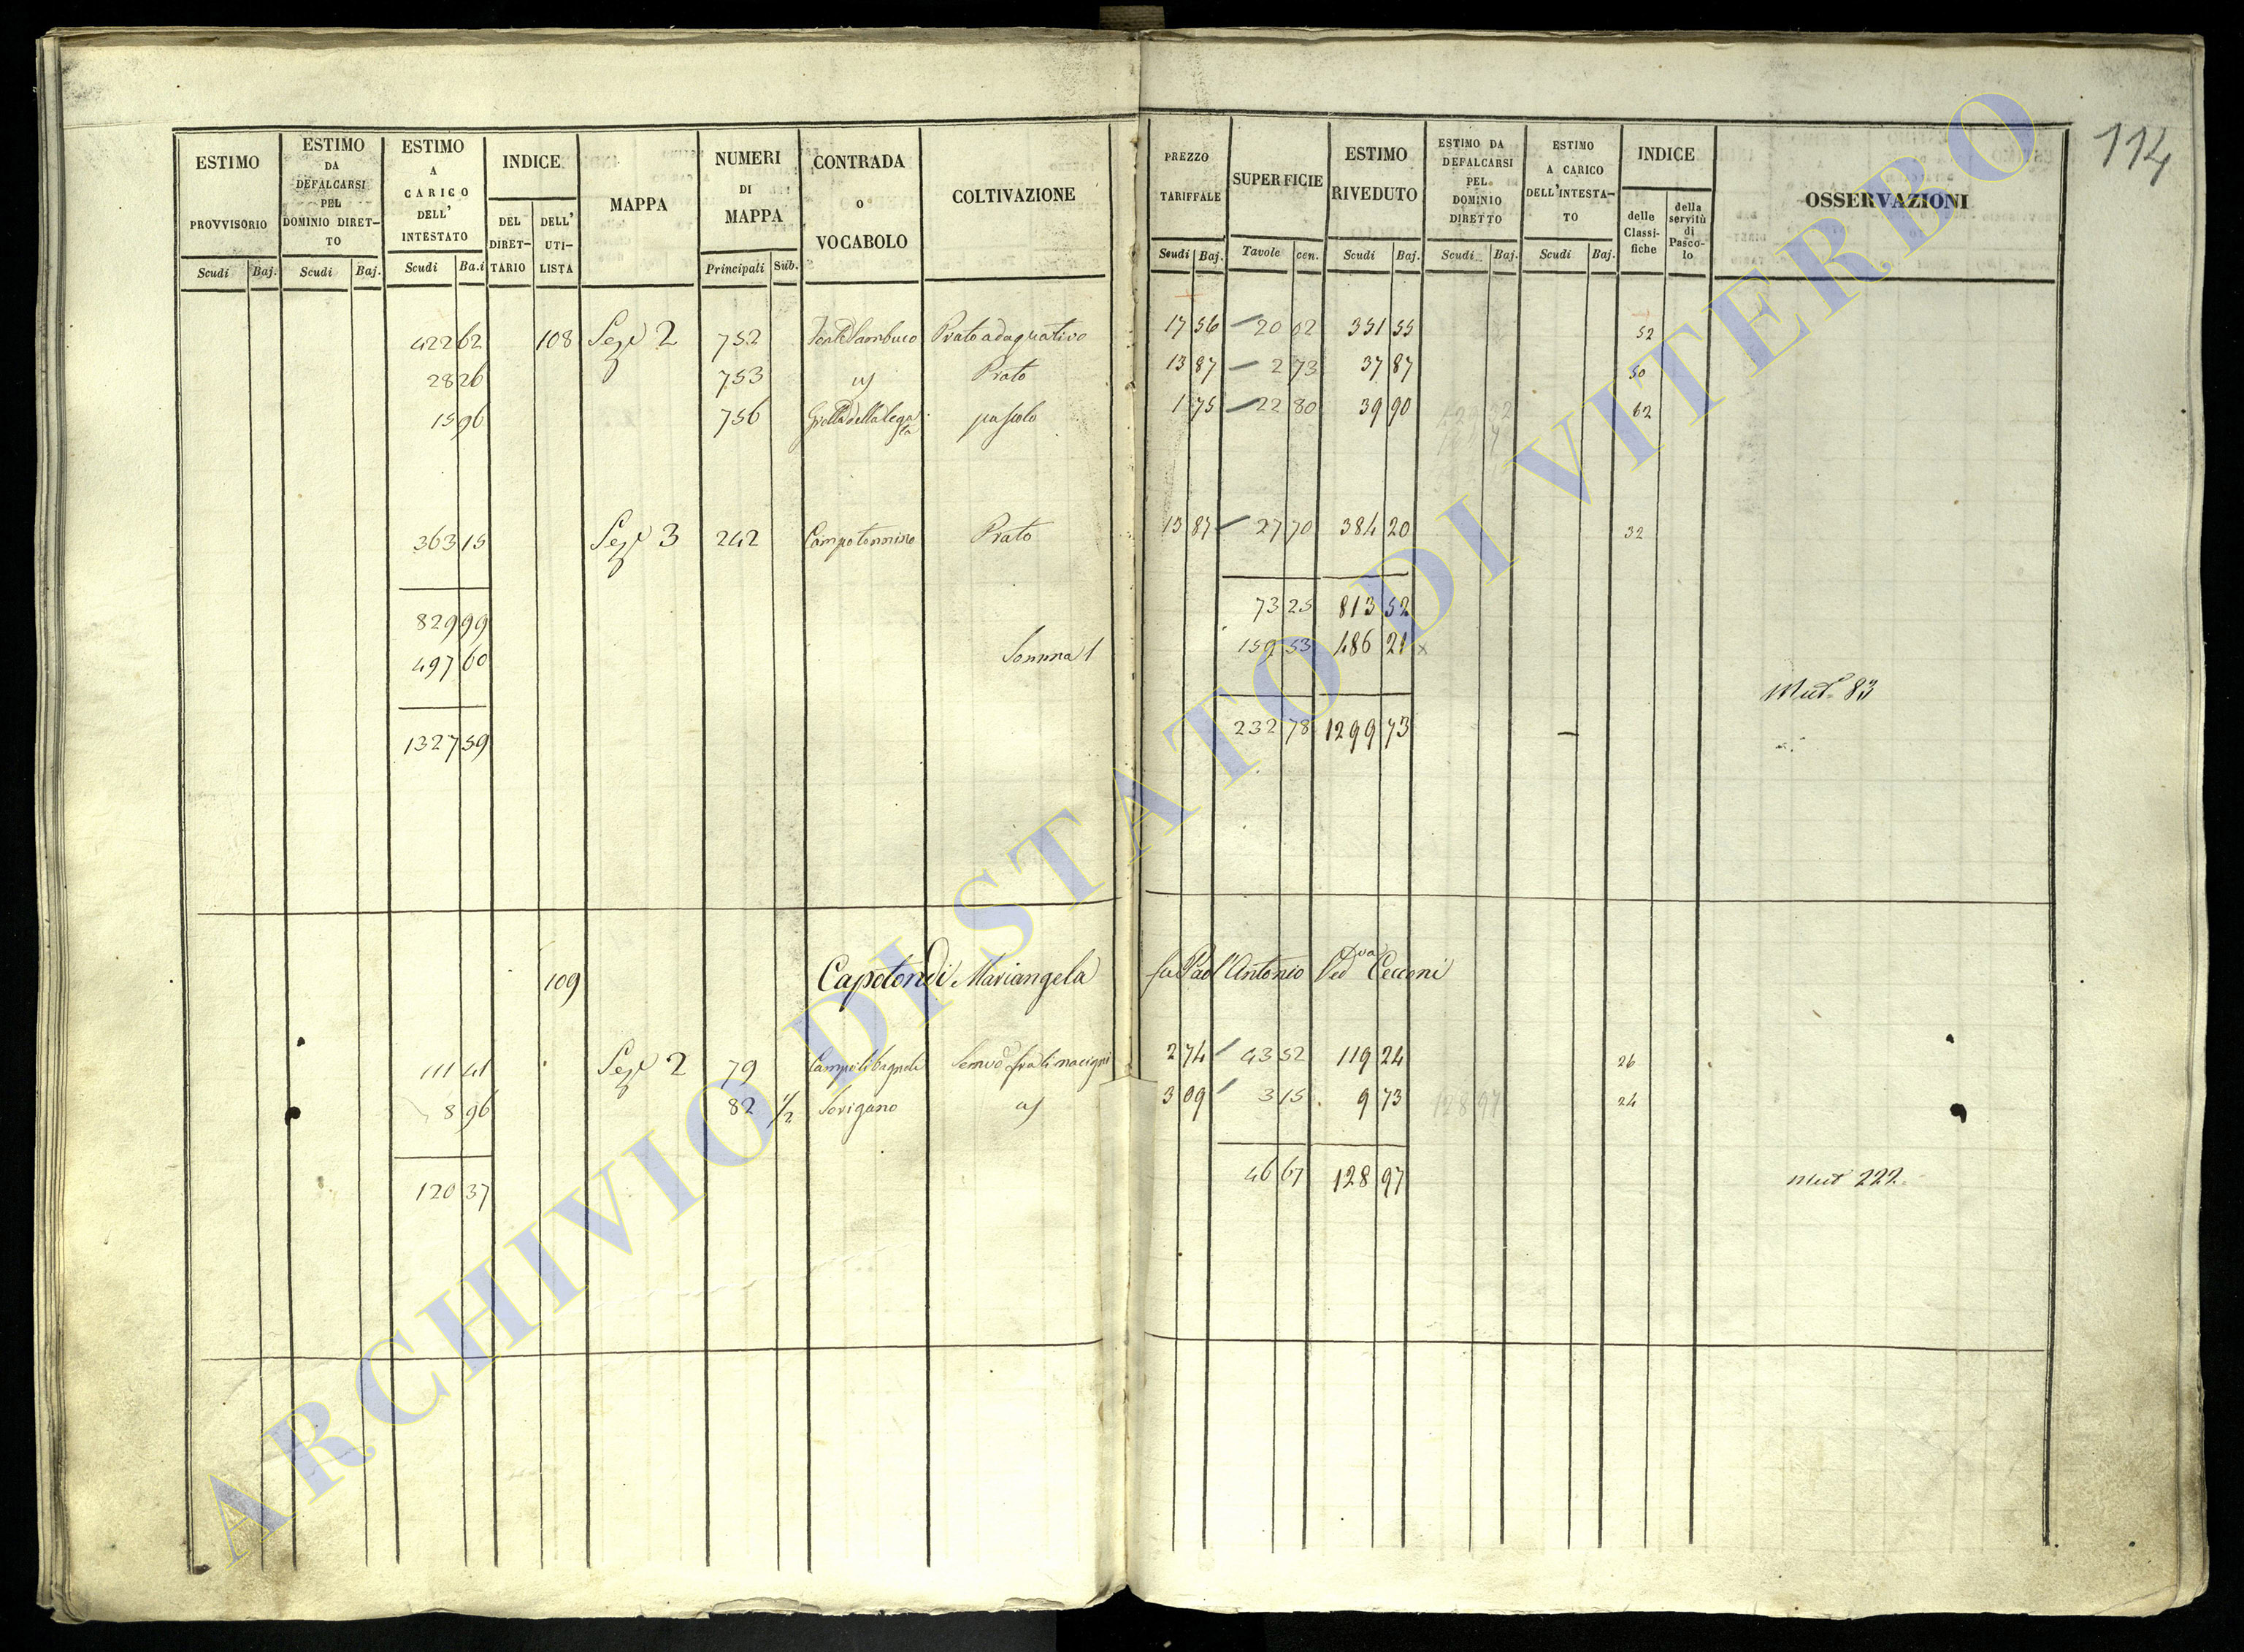 114
ESTIMO PROVVISORIO
Scudi Baj.
ESTIMO DA DEFALCARSI PEL DOMINIO DIRET-TO
Scudi Baj.
ESTIMO A CARICO DELL' INTESTATO
Scudi Ba.i
INDICE
DEL DIRET-TARIO
DELL' UTI-LISTA
MAPPA
NUMERI DI MAPPA
Principali Sub.
CONTRADA o VOCABOLO
COLTIVAZIONE
PREZZO TARIFFALE
Scudi Baj.
SUPERFICIE
Tavole cen.
ESTIMO RIVEDUTO
Scudi Baj.
ESTIMO DA DEFALCARSI PEL DOMINIO DIRETTO
Scudi Baj.
ESTIMO A CARICO DELL'INTESTA-TO
Scudi Baj.
INDICE
delle Classi-fiche
della servitù di Pasco-lo
OSSERVAZIONI
422 62 108 Sez.e 2 752 Prato adaquativo 17 56 20 02 351 55 52
28 26 753 Prato 13 87 2 73 37 87 50
15 96 756 pascolo 1 75 22 80 39 90 62
363 15 Sez.e 3 242 Campotonnino Prato 13 87 27 70 384 20 32
829 99 73 25 813 52
497 60 Somma 1 159 53 486 21 x
Mut.e 83
1327 59 232 78 1299 73 —
109 Capotondi Mariangela fu Paol'Antonio Ved.va Cecconi
111 41 Sez.e 2 79 2 74 43 52 119 24 26
8 96 82 1/2 Sorigano 3 09 3 15 9 73 128 97 24
120 37 46 67 128 97 Mut 222
ARCHIVIO DI STATO DI VITERBO